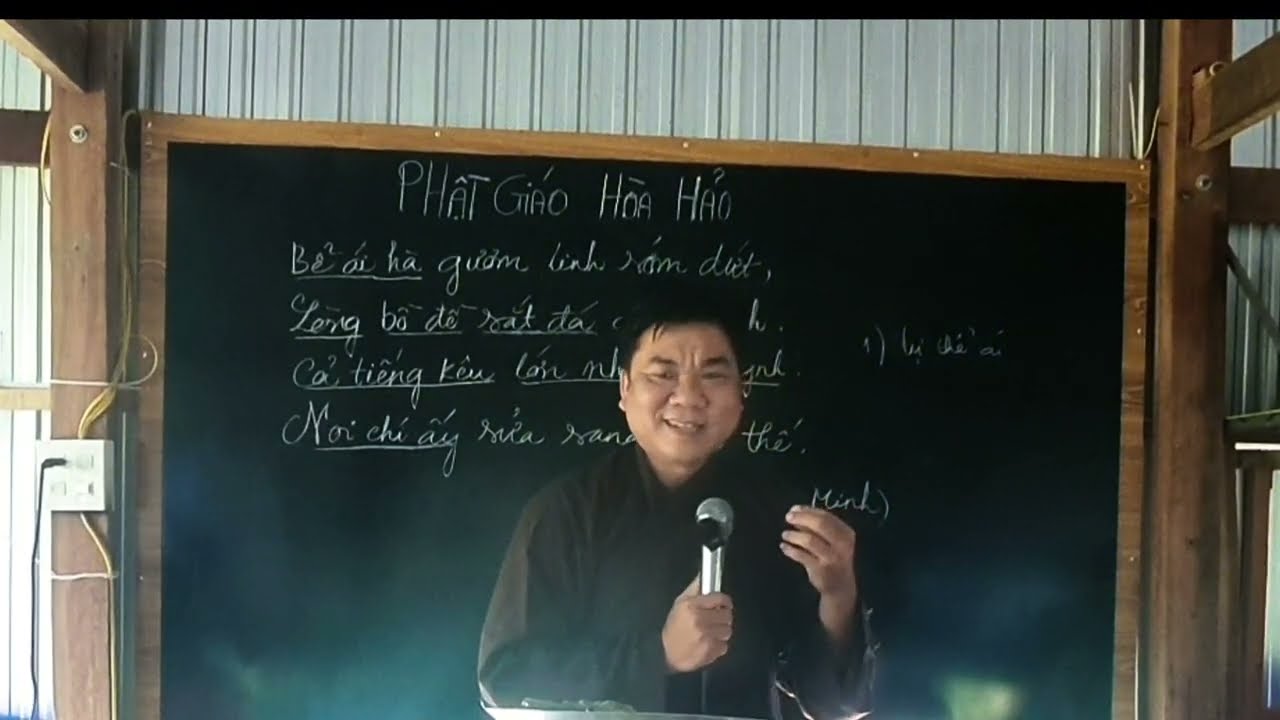 PHẬT GIÁO HÒA HẢO
Bể ái hà gươm linh sớm dứt,
Lòng bồ đề sắt đá
Cả tiếng kêu lớn
Nơi chí ấy sửa sang thế.
1) lụy thê ái
Minh)